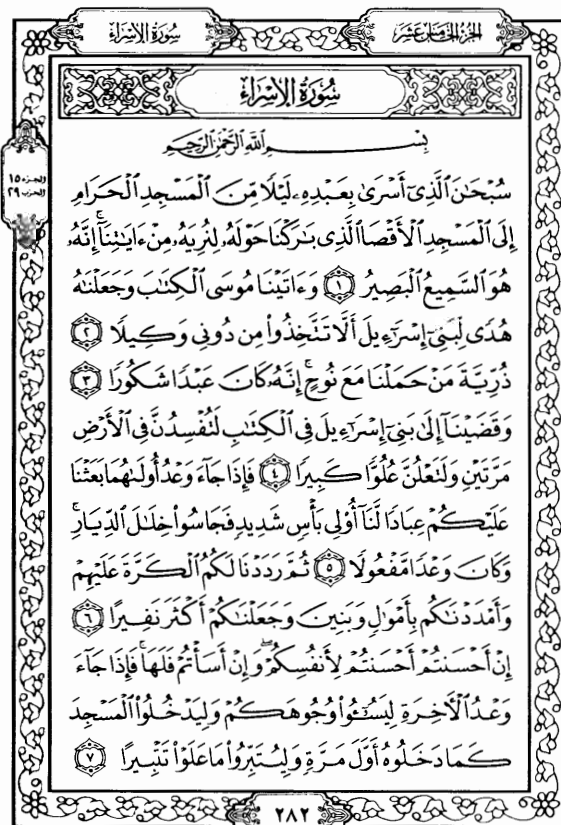 الجزء الخامس عشر
سورة الإسراء
سُورَةُ الإِسْرَاءِ
الجزء ١٥
الحزب ٢٩
بِسْمِ ٱللَّهِ ٱلرَّحْمَٰنِ ٱلرَّحِيمِ
سُبْحَٰنَ ٱلَّذِىٓ أَسْرَىٰ بِعَبْدِهِۦ لَيْلًا مِّنَ ٱلْمَسْجِدِ ٱلْحَرَامِ
إِلَى ٱلْمَسْجِدِ ٱلْأَقْصَا ٱلَّذِى بَٰرَكْنَا حَوْلَهُۥ لِنُرِيَهُۥ مِنْ ءَايَٰتِنَآ ۚ إِنَّهُۥ
هُوَ ٱلسَّمِيعُ ٱلْبَصِيرُ ١ وَءَاتَيْنَا مُوسَى ٱلْكِتَٰبَ وَجَعَلْنَٰهُ
هُدًى لِّبَنِىٓ إِسْرَٰٓءِيلَ أَلَّا تَتَّخِذُوا۟ مِن دُونِى وَكِيلًا ٢
ذُرِّيَّةَ مَنْ حَمَلْنَا مَعَ نُوحٍ ۚ إِنَّهُۥ كَانَ عَبْدًا شَكُورًا ٣
وَقَضَيْنَآ إِلَىٰ بَنِىٓ إِسْرَٰٓءِيلَ فِى ٱلْكِتَٰبِ لَتُفْسِدُنَّ فِى ٱلْأَرْضِ
مَرَّتَيْنِ وَلَتَعْلُنَّ عُلُوًّا كَبِيرًا ٤ فَإِذَا جَآءَ وَعْدُ أُولَىٰهُمَا بَعَثْنَا
عَلَيْكُمْ عِبَادًا لَّنَآ أُو۟لِى بَأْسٍ شَدِيدٍ فَجَاسُوا۟ خِلَٰلَ ٱلدِّيَارِ ۚ
وَكَانَ وَعْدًا مَّفْعُولًا ٥ ثُمَّ رَدَدْنَا لَكُمُ ٱلْكَرَّةَ عَلَيْهِمْ
وَأَمْدَدْنَٰكُم بِأَمْوَٰلٍ وَبَنِينَ وَجَعَلْنَٰكُمْ أَكْثَرَ نَفِيرًا ٦
إِنْ أَحْسَنتُمْ أَحْسَنتُمْ لِأَنفُسِكُمْ ۖ وَإِنْ أَسَأْتُمْ فَلَهَا ۚ فَإِذَا جَآءَ
وَعْدُ ٱلْءَاخِرَةِ لِيَسُۥٓـُٔوا۟ وُجُوهَكُمْ وَلِيَدْخُلُوا۟ ٱلْمَسْجِدَ
كَمَا دَخَلُوهُ أَوَّلَ مَرَّةٍ وَلِيُتَبِّرُوا۟ مَا عَلَوْا۟ تَتْبِيرًا ٧
٢٨٢